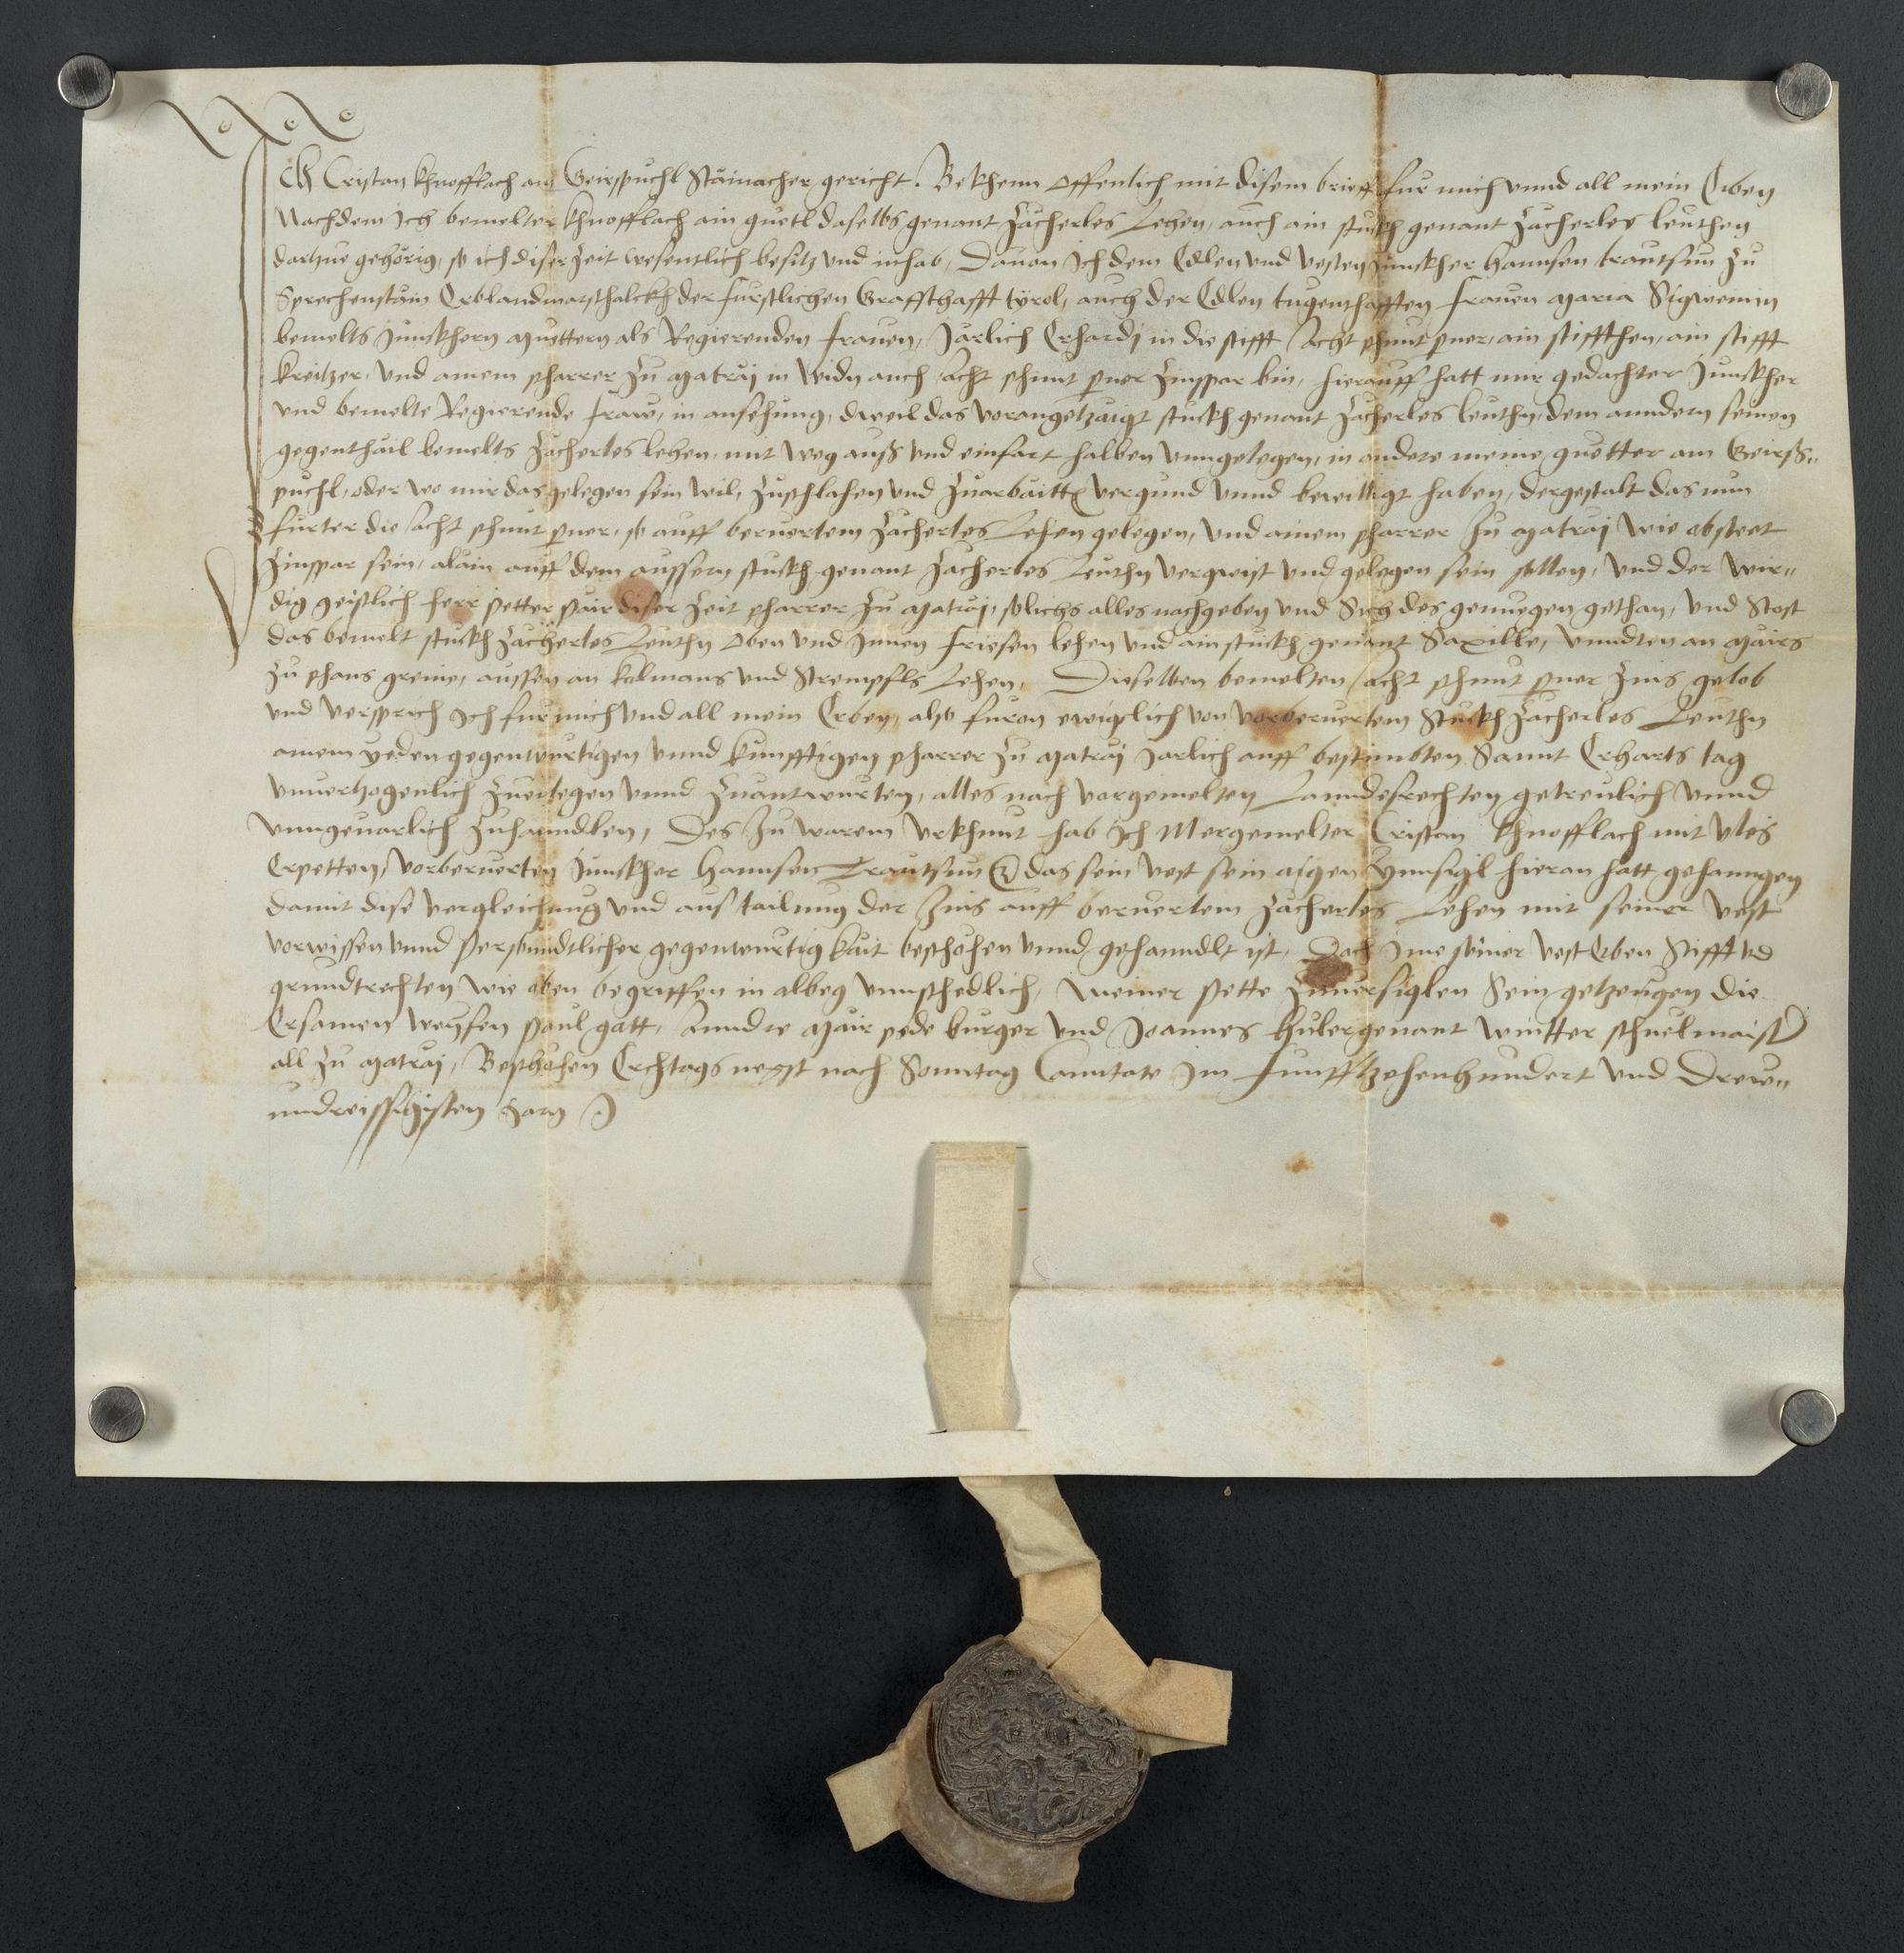 Ich Cristan Khnofflach am Geirspuchl Stainacher gericht. Bekhenn offenlich mit disem brieff fur mich unnd all mein Erben
Nachdem ich bemelter Khnofflach ain guetl daselbs genant Zächerles Lehen, auch ain stuckh genant Zächerles leuthen
dartzue gehörig, so ich diser zeit wesentlich besitz und inhab, Dauon ich dem Edlen und vesten Junckher Hannsen trautsun zu
Sprechenstain Erblandmarschalckh der furstlichen Graffschafft tyrol, auch der Edlen tugenthafften frauen Maria Sigweinin
bemelts Junckhern Muettern als Regierenden frauen, Järlich Erhardj in die stifft Acht phunt perner, ain stiffthen, ain stifft
kreitzer, und ainem pharrer zu Matraj in Widn auch Acht phunt perner zinspar bin, hierauff hatt mir gedachter Junckher
und bemelte Regierende fraw, in ansehung, dweil das vorangetzaigt stuckh genant Zächerles leuthn, dem anndern seinen
gegenthail bemelts Zächerles lehen, mit weg auss und einfart halben unngelegen, in andere meine guetter am Geirss-
puchl, oder wo mir das gelegen sein wil, zuschlahen und zuarbaitten vergund unnd bewilligt haben, dergestalt das nun
furter die Acht phunt perner, so auff beruertem Zächerles Lehen gelegen, und ainem pharrer zu Matraj wie obsteet
zinspar sein, alain auff dem aussern stuckh genant Zächerles Leuthn verweist und gelegen sein sollen, und der wir-
dig geistlich herr petter pair diser zeit pharrer zu Matraj, solichs alles nachgeben und Sich des genuegen gethan, und Stost
das bemelt stuckh Zächerles Leuthn Oben und Innen friesen lehen und ain stuckh genant Saxille, unndten an Mairs
zu phans greine, aussen an kolmans und Strempfls Lehen, Dieselben bemelten Acht phunt perner zins gelob
und versprich Ich fur mich und all mein Erben, also furon ewigclich von vorberuertem Stuckh Zächerles Leuthn
ainem yeden gegenwurtigen unnd kunfftigen pharrer zu Matraj Jarlich auff bestimbten Sannt Erharts tag
unuertzogenlich zuerlegen unnd zuantwurten, alles nach vorgemelten Lanndesrechten getreulich unnd
unngeuarlich zuhanndlen, Des zu warem Urkhunt hab ich Mergemelter Cristan Khnofflach mit vleis
Erpetten, vorberuerten Junckher Hannsen Trautsun das sein vest sein aigen Innsigl hieran hatt gehanngen
damit dise vergleichung und austailung der zins auff beruertem Zächerles Lehen mit seiner vest
vorwissen unnd persoundtlicher gegenwurtigkait beschehen unnd gehanndlt ist, Doch Ime seiner vest Erben Stifft und
grundtrechten wie oben begriffen in albeg unnschedlich, Meiner pette zuuersiglen Sein getzeugen die
Ersamen weysen paul gatt, Anndre Mair pede burger und Joannes Huler genant wintter schuelmaister
all zu Matraj, Beschehen Erchtags negst nach Sonntag Canntate Im funfftzehenhundert und Drew-
undreissigisten Jarn